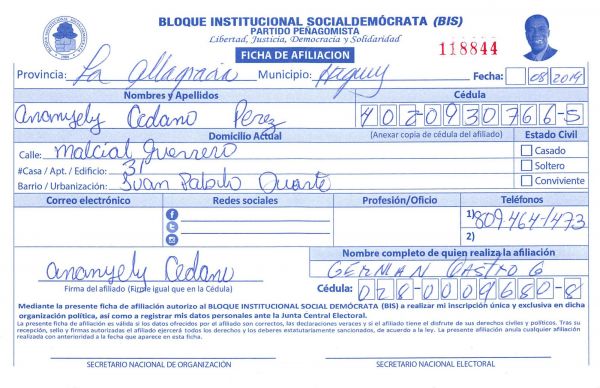 BLOQUE INSTITUCIONAL SOCIALDEMÓCRATA (BIS)
PARTIDO PEÑAGOMISTA
Libertad, Justicia, Democracia y Solidaridad
FICHA DE AFILIACION
118844
Provincia: La Altagracia Municipio: Higuey Fecha: 08 2019
Nombres y Apellidos Cédula
Ananyely Cedano Perez 402-0930766-5
Domicilio Actual (Anexar copia de cédula del afiliado) Estado Civil
Calle: Malcial Guerrero Casado
#Casa / Apt. / Edificio: 31 Soltero
Barrio / Urbanización: Juan Pablo Duarte Conviviente
Correo electrónico Redes sociales Profesión/Oficio Teléfonos
1) 809.464-1473
2)
Nombre completo de quien realiza la afiliación
Ananyely Cedano GERMAN CASTRO G
Firma del afiliado (Firme igual que en la Cédula) Cédula: 028-0009680-8
Mediante la presente ficha de afiliación autorizo al BLOQUE INSTITUCIONAL SOCIAL DEMÓCRATA (BIS) a realizar mi inscripción única y exclusiva en dicha
organización política, así como a registrar mis datos personales ante la Junta Central Electoral.
La presente ficha de afiliación es válida si los datos ofrecidos por el afiliado son correctos, las declaraciones veraces y si el afiliado tiene el disfrute de sus derechos civiles y políticos. Tras su
recepción, sello y firmas autorizadas el afiliado ejercerá todos los derechos y los deberes estatutariamente sancionados, de acuerdo a la ley. La presente afiliación anula cualquier afiliación
realizada con anterioridad a la fecha que aparece en esta ficha.
SECRETARIO NACIONAL DE ORGANIZACIÓN SECRETARIO NACIONAL ELECTORAL